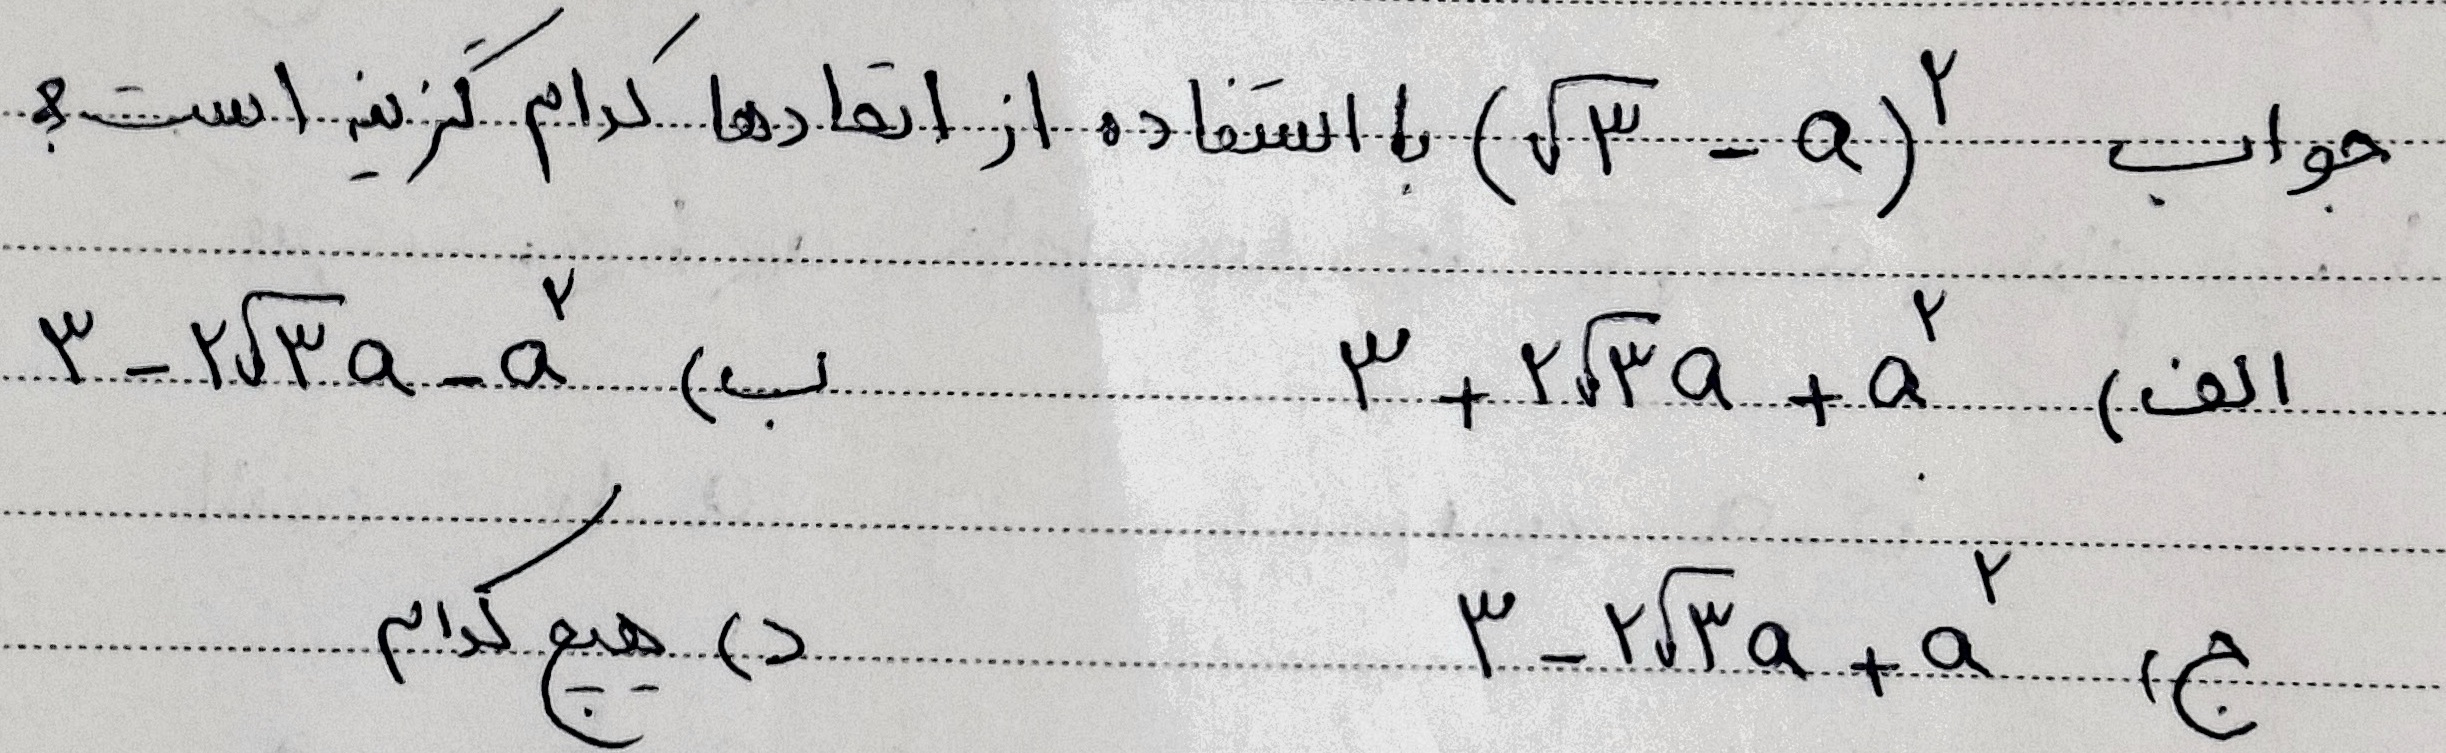 جواب (√۳ - a)^۲ با استفاده از اتحادها کدام گزینه است؟
الف) ۳ + ۲√۳a + a^۲ ب) ۳ - ۲√۳a - a^۲
ج) ۳ - ۲√۳a + a^۲ د) هیچ کدام